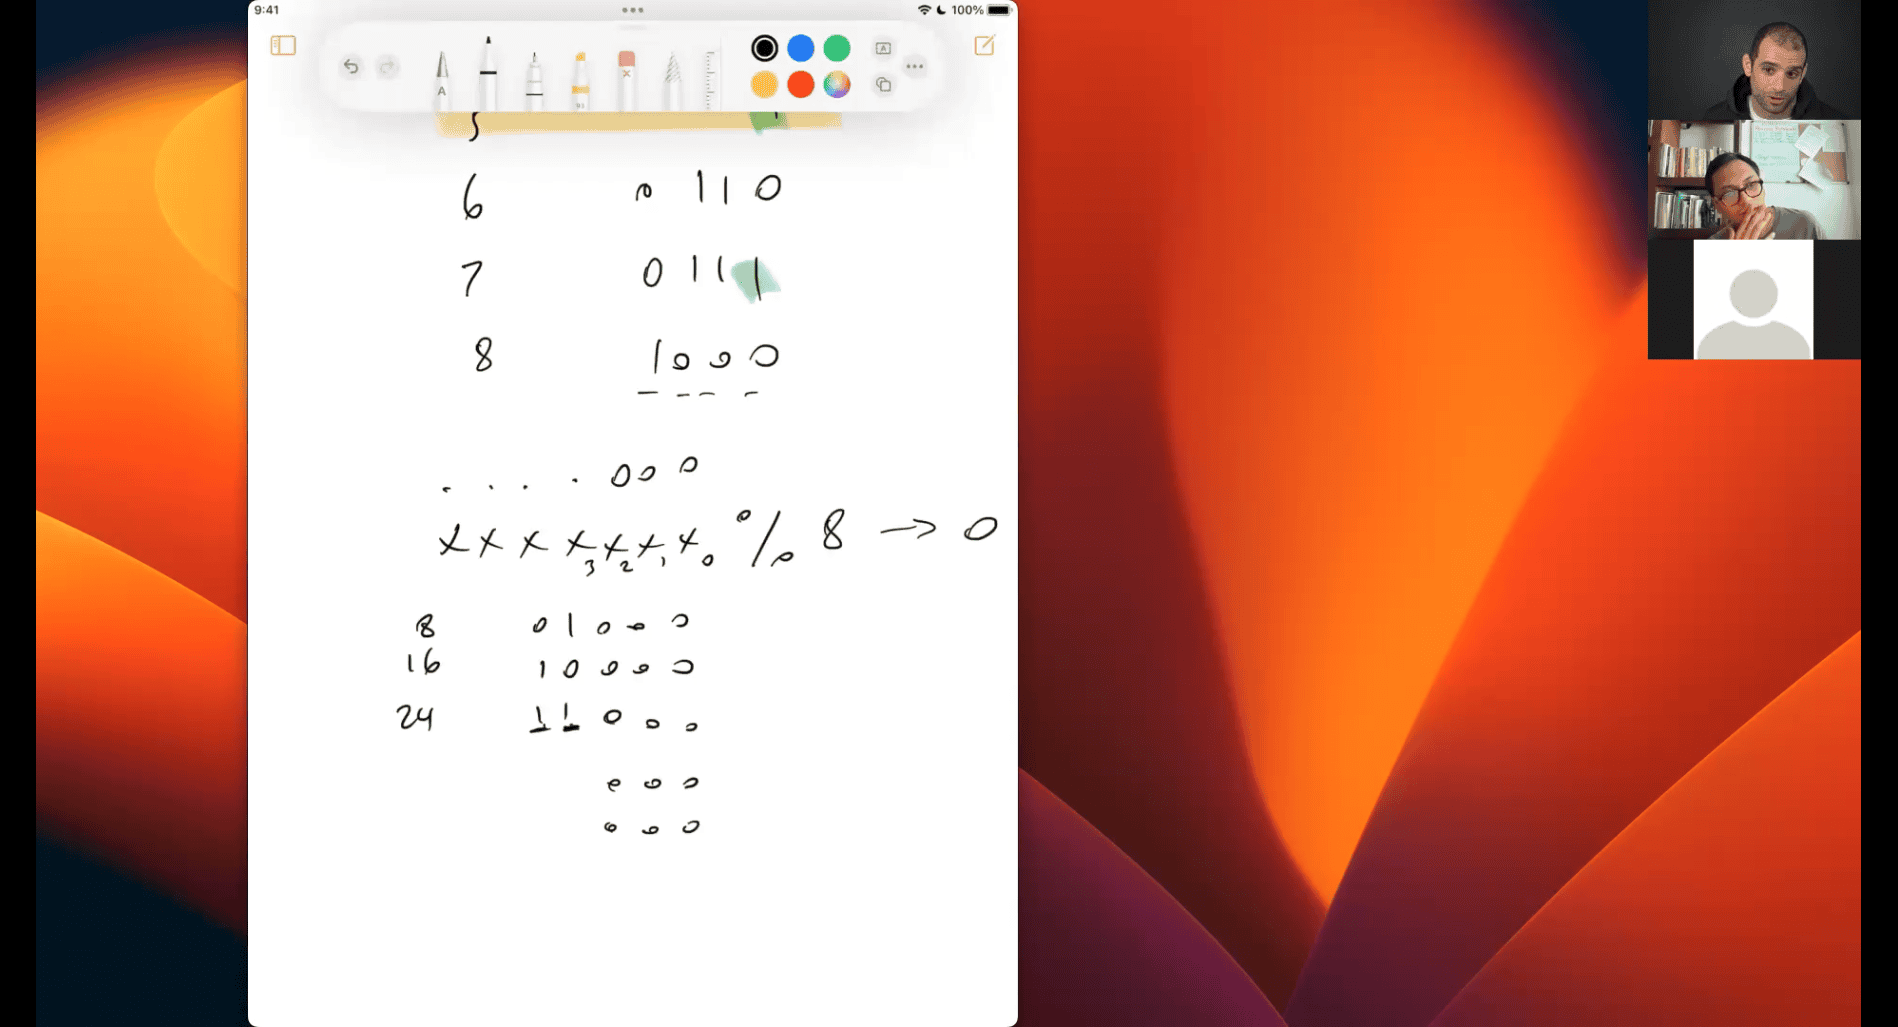 9:41
100%
A
A
5
6 0 1 1 0
7 0 1 1 1
8 1 0 0 0
. . . . 0 0 0
x x x x₃ x₂ x₁ x₀ % 8 → 0
8 0 1 0 0 0
16 1 0 0 0 0
24 1 1 0 0 0
0 0 0
0 0 0